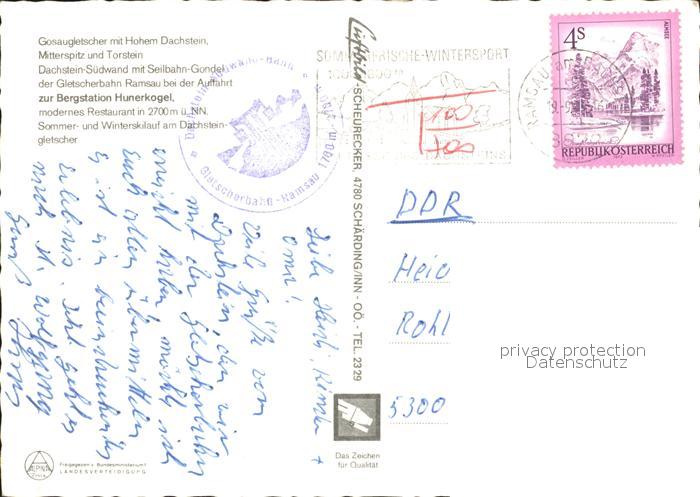 Gosaugletscher mit Hohem Dachstein,
Mitterspitz und Torstein
Dachstein-Südwand mit Seilbahn-Gondel
der Gletscherbahn Ramsau bei der Auffahrt
zur Bergstation Hunerkogel,
modernes Restaurant in 2700 m ü. NN.
Sommer- und Winterskilauf am Dachstein-
gletscher
Gletscherbahn-Ramsau
SOMMERFRISCHE-WINTERSPORT
4 S
ALMSEE
REPUBLIK ÖSTERREICH
RAMSAU am
T
Luftbild-SCHEURECKER, 4780 SCHÄRDING/INN - OÖ. - TEL. 2329
Liebe
Omi!
Viele Grüße vom
Dachstein, den wir
mit der Gletscherbahn
erreicht haben möchte ich
Euch allen übermitteln
Es ist ein
Erlebnis. Jetzt geht es
nach St. Wolfgang
Gruß
DDR
Rohl
5300
privacy protection
Datenschutz
Das Zeichen
für Qualität
ALPINA
Freigegeben v. Bundesministerium f.
LANDESVERTEIDIGUNG